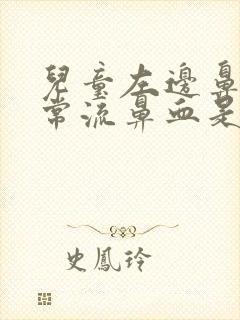 兒童左邊鼻
常流鼻血是
史鳳玲